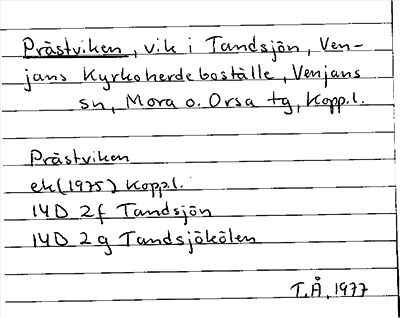 Prästviken, vik i Tandsjön, Ven-
jans Kyrkoherdeboställe, Venjans
sn, Mora o. Orsa tg, Kopp.l.
Prästviken
ek (1975) Kopp.l.
14D 2f Tandsjön
14D 2g Tandsjökölen
T.Å. 1977